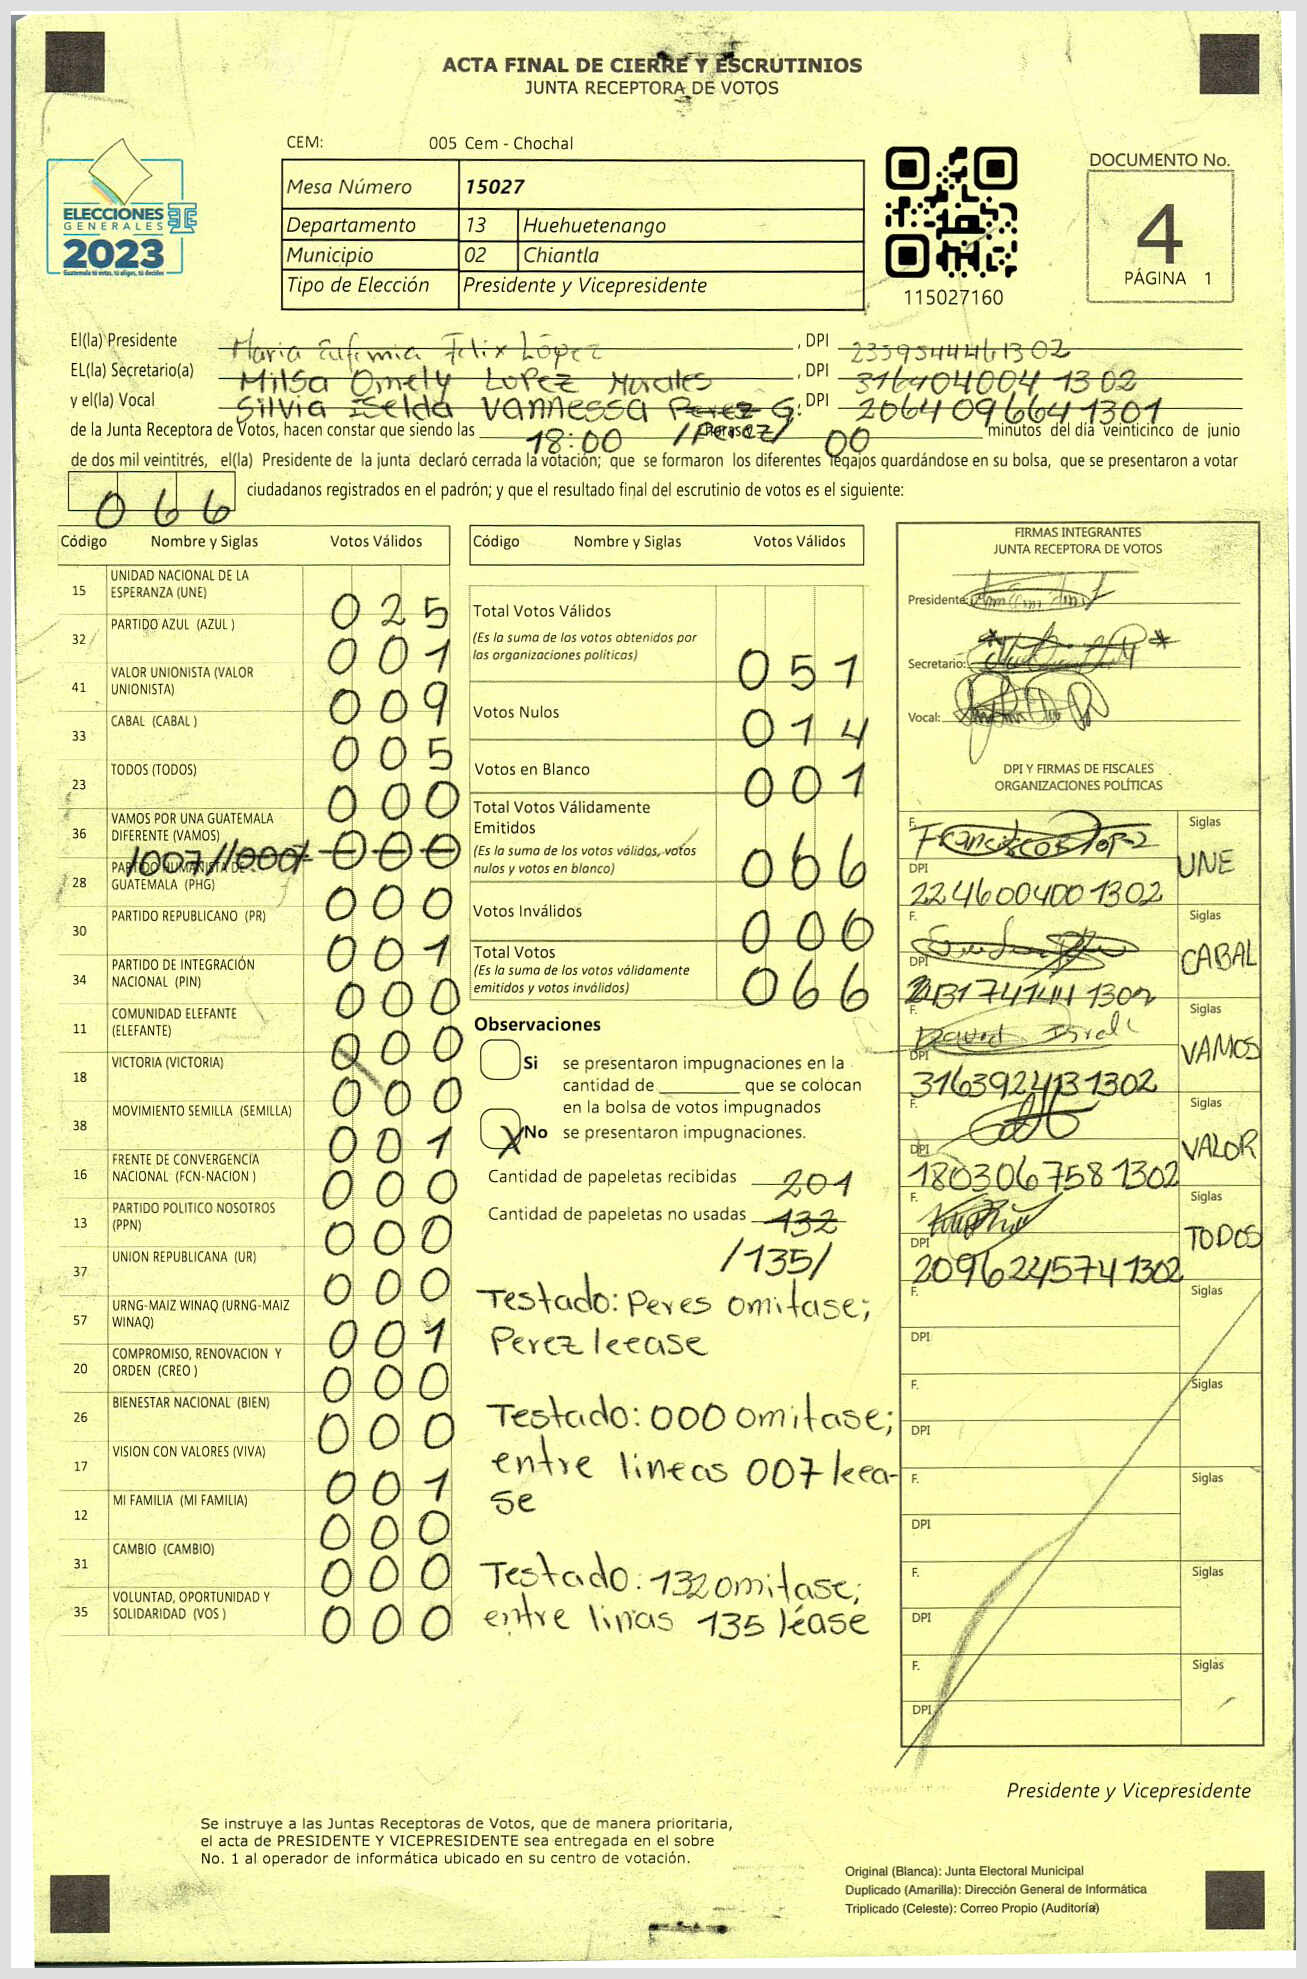 ACTA FINAL DE CIERRE Y ESCRUTINIOS
JUNTA RECEPTORA DE VOTOS
CEM: 005 Cem - Chochal
Mesa Número 15027
Departamento 13 Huehuetenango
Municipio 02 Chiantla
Tipo de Elección Presidente y Vicepresidente
ELECCIONES
GENERALES
2023
Guatemala tú votas, tú eliges, tú decides
115027160
DOCUMENTO No.
4
PÁGINA 1
El(la) Presidente Maria Eufemia Felix López , DPI 2359544461302
EL(la) Secretario(a) Milsa Omely Lopez Morales , DPI 3164040041302
y el(la) Vocal Silvia Iselda Vannessa Perez G. , DPI 2064096641301
de la Junta Receptora de Votos, hacen constar que siendo las 18:00 /Perez/ horas 00 minutos del día veinticinco de junio
de dos mil veintitrés, el(la) Presidente de la junta declaró cerrada la votación; que se formaron los diferentes legajos guardándose en su bolsa, que se presentaron a votar
066 ciudadanos registrados en el padrón; y que el resultado final del escrutinio de votos es el siguiente:
Código Nombre y Siglas Votos Válidos
15 UNIDAD NACIONAL DE LA ESPERANZA (UNE) 025
32 PARTIDO AZUL (AZUL ) 001
41 VALOR UNIONISTA (VALOR UNIONISTA) 009
33 CABAL (CABAL ) 005
23 TODOS (TODOS) 000
36 VAMOS POR UNA GUATEMALA DIFERENTE (VAMOS) /007//000/ 000
28 PARTIDO HUMANISTA DE GUATEMALA (PHG) 000
30 PARTIDO REPUBLICANO (PR) 001
34 PARTIDO DE INTEGRACIÓN NACIONAL (PIN) 000
11 COMUNIDAD ELEFANTE (ELEFANTE) 000
18 VICTORIA (VICTORIA) 000
38 MOVIMIENTO SEMILLA (SEMILLA) 001
16 FRENTE DE CONVERGENCIA NACIONAL (FCN-NACION ) 000
13 PARTIDO POLITICO NOSOTROS (PPN) 000
37 UNION REPUBLICANA (UR) 000
57 URNG-MAIZ WINAQ (URNG-MAIZ WINAQ) 001
20 COMPROMISO, RENOVACION Y ORDEN (CREO ) 000
26 BIENESTAR NACIONAL (BIEN) 000
17 VISION CON VALORES (VIVA) 001
12 MI FAMILIA (MI FAMILIA) 000
31 CAMBIO (CAMBIO) 000
35 VOLUNTAD, OPORTUNIDAD Y SOLIDARIDAD (VOS ) 000
Código Nombre y Siglas Votos Válidos
Total Votos Válidos
(Es la suma de los votos obtenidos por
las organizaciones políticas) 051
Votos Nulos 014
Votos en Blanco 001
Total Votos Válidamente
Emitidos
(Es la suma de los votos válidos, votos
nulos y votos en blanco) 066
Votos Inválidos 000
Total Votos
(Es la suma de los votos válidamente
emitidos y votos inválidos) 066
Observaciones
Si se presentaron impugnaciones en la
cantidad de ________ que se colocan
en la bolsa de votos impugnados
X No se presentaron impugnaciones.
Cantidad de papeletas recibidas 201
Cantidad de papeletas no usadas 132
/135/
Testado: Peres omitase;
Perez leease
Testado: 000 omitase;
entre lineas 007 leea-
se
Testado: 132 omitase;
entre linas 135 léase
FIRMAS INTEGRANTES
JUNTA RECEPTORA DE VOTOS
Presidente:
Secretario:
Vocal:
DPI Y FIRMAS DE FISCALES
ORGANIZACIONES POLÍTICAS
F. Siglas
DPI 2246004001302 UNE
F. Siglas
DPI CABAL
F. David Siglas
DPI 3163924131302 VAMOS
F. Siglas
DPI 1803067581302 VALOR
F. Siglas
DPI 2096245741302 TODOS
F. Siglas
DPI
F. Siglas
DPI
F. Siglas
DPI
F. Siglas
DPI
F. Siglas
DPI
Presidente y Vicepresidente
Se instruye a las Juntas Receptoras de Votos, que de manera prioritaria,
el acta de PRESIDENTE Y VICEPRESIDENTE sea entregada en el sobre
No. 1 al operador de informática ubicado en su centro de votación.
Original (Blanca): Junta Electoral Municipal
Duplicado (Amarilla): Dirección General de Informática
Triplicado (Celeste): Correo Propio (Auditoría)